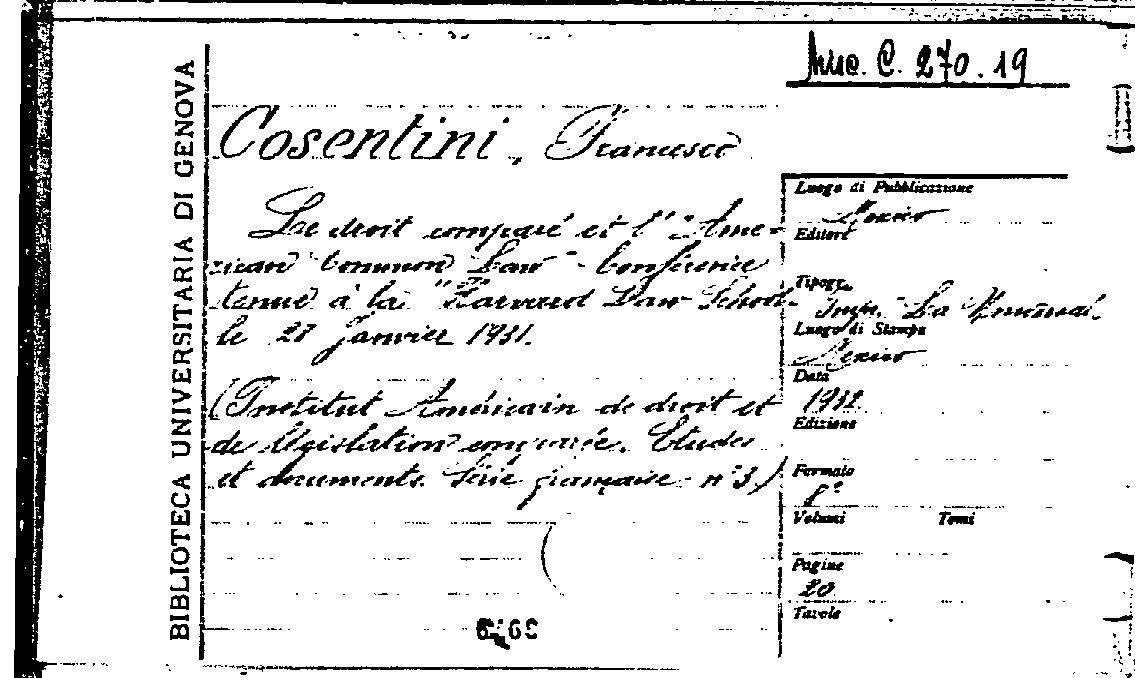 Misc. C. 270.19
BIBLIOTECA UNIVERSITARIA DI GENOVA
Cosentini, Francesco
Le droit comparé et l' "Ame-
rican Common Law" - Conférence
tenue à la "Harvard Law School"
le 27 Janvier 1931.
(Institut Américain de droit et
de législation comparée. Etudes
et documents. Série française - n° 3)
Luogo di Pubblicazione
Mexico
Editore
Tipogr.
Imp. "La
Luogo di Stampa
Mexico
Data
1932
Edizione
Formato
8°
Volumi Tomi
Pagine
20
Tavole